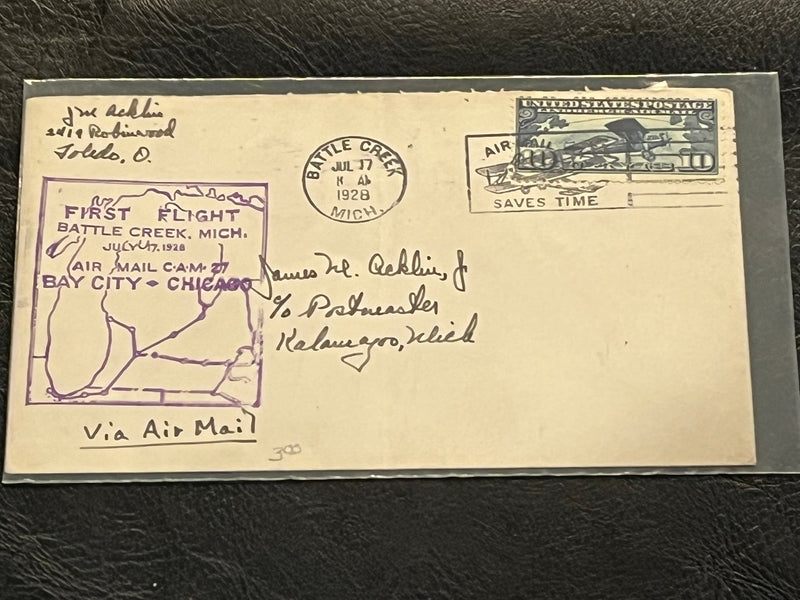 J M Acklin
2419 Robinwood
Toledo, O.
BATTLE CREEK
JUL 17
AM
1928
MICH.
AIR
SAVES TIME
UNITED STATES POSTAGE
LINDBERGH AIR MAIL
10 10
FIRST FLIGHT
BATTLE CREEK, MICH.
JULY 17, 1928
AIR MAIL C·A·M· 27
BAY CITY CHICAGO
James M. Acklin, Jr
c/o Postmaster
Kalamazoo, Mich
Via Air Mail
300